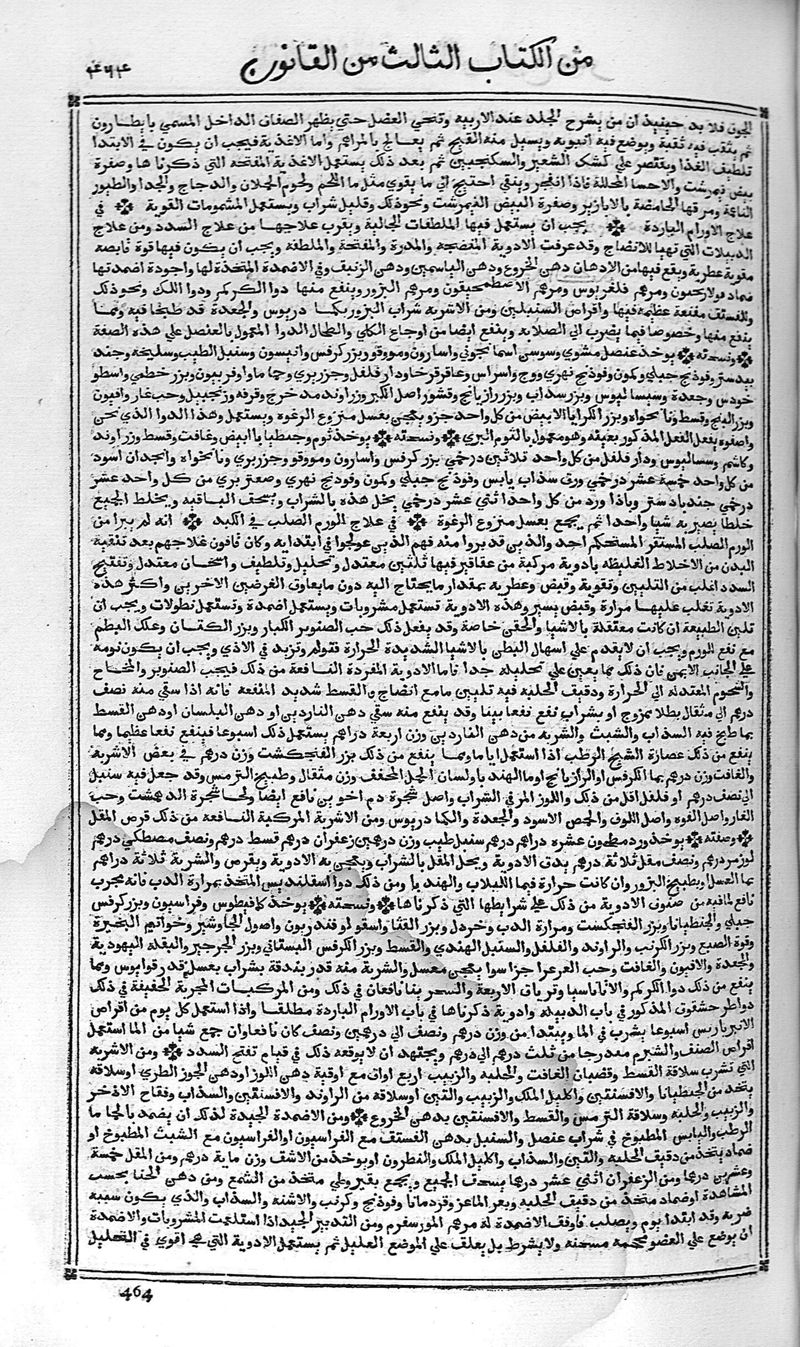 من الكتاب الثالث من القانون
٤٦٤
الجوف فلا بد حينيذ ان من يشرح الجلد عند الاربيه وتنحي العضل حتي يظهر الصفاق الداخل المسمي باريطارون
ثم يثقب فيه ثقبة ويوضع فيه انبوبه ويسيل منه القيح ثم يعالج بالمراهم واما الاغذية فيجب ان يكون في الابتدا
تلطيف الغذا ويقتصر علي كشك الشعير والسكنجبين ثم بعد ذلك يستعمل الاغذية المفتحه التي ذكرناها وصفرة
بيض نيمرشت والاحسا المحللة فاذا انفجر ونقي احتيج الي ما يقوي مثل ما اللحم ولحوم الحملان والدجاج والجدا والطيور
الناعمة ومرقها الحامضة بالابازير وصفرة البيض النيمرشت ونحو ذلك وقليل شراب ويستعمل المشمومات القوية في
علاج الاورام الباردة يجب ان يستعمل فيها الملطفات الجالية ويقرب علاجها من علاج السدد ومن علاج
الدبيلات التي تهيا للانضاج وقد عرفت الادوية المنضجه والمدرة والمفتحة والملطفه ويجب ان يكون فيها قوة قابضه
مقوية عطرية ويقع فيها من الادهان دهن الخروع ودهن الياسمين ودهن الزنبق وفي الاضمدة المتخذة لها واجودة اضمدتها
ضماد فولارحيون ومرهم فلغريوس ومرهم الاصطمحيقون ومرهم البزور وينفع منها دوا الكركم ودوا اللك ونحو ذلك
وللفستق منفعة عظيمه فيها واقراص السنبلين ومن الاشربه شراب البزور بكما دريوس والجعدة قد طبخا فيه ومما
ينفع منها وخصوصا فيما يضرب الي الصلابه وينفع ايضا من اوجاع الكلي والطحال الدوا المعمول بالعنصل علي هذه الصفة
ونسخته يوخذ عنصل مشوي وسوسن اسمانجوني واسارون ومووفو وبزر كرفس وانيسون وسنبل الطيب وسليخه وجند
بيدستر وفوذنج جبلي وكمون وفوذنج نهري ووج واسراس وعاقر قرحا ودار فلفل وجزر بري وحماما واوفربيون وبزر خطمي واسطو
خودس وجعدة وسيساليوس وبزر سداب وبزر رازيانج وقشور اصل الكبر وزراوند مدحرج وقرفه وزنجبيل وحب غار وافيون
وبزر البنج وقسط ونانخواه وبزر الكراويا الابيض من كل واحد جزو يعجن بعسل منزوع الرغوة ويستعمل وهذا الدوا الذي نحن
واصفوه يفعل الفعل المذكور بعينه وهو معمول بالثوم البري ونسخته يوخذ ثوم وجنطيانا ابيض وغافت وقسط وزراوند
وكاشم وسيساليوس ودار فلفل من كل واحد ثلاثين درخمي بزر كرفس واسارون ومووفو وجزر بري ونانخواه وانجدان اسود
من كل واحد خمسة عشر درخمي ورق سداب يابس وفوذنج جبلي وكمون وفوذنج نهري وصعتر بري من كل واحد عشر
درخمي جندبادستر وباذا ورد من كل واحد اثني عشر درخمي يحل هذه بالشراب ويسحق الباقيه ويخلط الجميع
خلطا يصير به شيا واحدا ثم يجمع بعسل منزوع الرغوة في علاج الورم الصلب في الكبد انه لم يبرا من
الورم الصلب المستقر المستحكم احد والذين قد بروا منه فهم الذين عولجوا في ابتدايه وكان قانون علاجهم بعد تنقية
البدن من الاخلاط الغليظه بادوية مركبة من عقاقير فيها تليين معتدل وتحليل وتلطيف واسخان معتدل وتفتيح
السدد اغلب من التليين وتقوية وقبض وعطريه بمقدار ما يحتاج اليه دون ما يعاوق الغرضين الاخرين واكثر هذه
الادوية تغلب عليها مرارة وقبض يسير وهذه الادوية تستعمل مشروبات ويستعمل اضمدة وتستعمل نطولات ويجب ان
تلين الطبيعة ان كانت معتقلة بالاشيا والحقن خاصة وقد يفعل ذلك حب الصنوبر الكبار وبزر الكتان وعلك البطم
مع نفع للورم ويجب ان لا يقدم علي اسهال البطن بالاشيا الشديدة الحرارة فتولم وتزيد في الاذي ويجب ان يكون نومه
علي الجانب الايمن فان ذلك مما يعين علي تحليله جدا فاما الادوية المفردة النافعة من ذلك فيجب الصنوبر والمخاخ
والشحوم المعتدله الي الحرارة ودقيق الحلبه فيه تليين ما مع انضاج والقسط شديد المنفعه فانه اذا سقي منه نصف
درهم الي مثقال بطلا ممزوج او بشراب نفع نفعا بينا وقد ينفع منه سقي دهن الناردين او دهن البلسان او دهن القسط
بما طبخ فيه السداب والشبت والشربه من دهن الناردين وزن اربعة دراهم يستعمل ذلك اسبوعا فينفع نفعا عظيما ومما
ينفع من ذلك عصارة الشيح الرطب اذا استعمل اياما ومما ينفع من ذلك بزر الفنجنكشت وزن درهم في بعض الاشربة
والغافت وزن درهم بما الكرفس او الرازيانج او ما الهندبا ولسان الحمل المجفف وزن مثقال وطبيخ الترمس وقد جعل فيه سنبل
الي نصف درهم او فلفل اقل من ذلك واللوز المر في الشراب واصل شجرة دم اخوين نافع ايضا ولحا شجرة الدهمست وحب
الغار واصل الفوه واصل اللوف والحمص الاسود والجعدة والكما دريوس ومن الاشربة المركبة النافعة من ذلك قرص المقل
وصفته يوخذ ورد مطحون عشره دراهم سنبل طيب وزن درهمين زعفران درهم قسط درهم ونصف مصطكي درهم
لوز مر درهم ونصف مقل ثلاثة درهم يدق الادوية ويحل المقل بالشراب ويعجن به الادوية ويقرص والشربة ثلاثة دراهم
بما العسل وبطبيخ البزور وان كانت حرارة فبما اللبلاب والهندبا ومن ذلك دوا اسقلنديس المتخذ بمرارة الدب فانه مجرب
نافع لما فيه من صنوف الادوية من ذلك علي شرابطها التي ذكرناها ونسخته يوخذ كمافيطوس وفراسيون وبزر كرفس
جبلي والجنطيانا وبزر الفنجنكشت ومرارة الدب وخردل وبزر القثا واسقولوفندريون واصول الجاوشير وخواتيم البحيرة
وقوة الصبغ وبزر الكرنب والراوند والفلفل والسنبل الهندي والقسط وبزر الكرفس البستاني وبزر الجرجير والبقلة اليهودية
والجعدة والافيون والغافت وحب العرعر اجزا سوا يعجن معسل والشربة منه قدر بندقة بشراب بعسل قدر قوابوس ومما
ينفع من ذلك دوا الكركم والاثاناسيا وترياق الاربعة والسجرينا نافعان في ذلك ومن المركبات المجربة الخفيفة في ذلك
دواطر حشقوق المذكور في باب الدبيله وادوية ذكرناها في باب الاورام الباردة مطلقا واذا استعمل كل يوم من اقراص
الانبرباريس اسبوعا بشرب في الما ويبتدا من وزن درهم ونصف الي درهمين ونصف كان نافعا وان جمع شيا من الما استعمل
اقراص الصنف والشبرم معدرجا من ثلث درهم الي درهم ويجتهد ان لا يوقعه ذلك في قيام تفتح السدد ومن الاشربه
التي تشرب سلاقة القسط وقضبان الغافت والحلبه والزبيب اربع اواق مع اوقية دهن اللوز او دهن الجوز الطري او سلاقه
يتخذ من الجنطيانا والافسنتين واكليل الملك والزبيب والتين او سلاقة من الراوند والافسنتين والسداب وفقاح الاذخر
والزبيب والحلبه وسلاقة الترمس والقسط والافسنتين بدهن الخروع ومن الاضمدة الجيدة لذلك ان يضمد بالحماما
الرطب واليابس المطبوخ في شراب عنصل والسنبل بدهن الفستق مع الفراسيون او الفراسيون مع الشبث المطبوخ او
ضماد يتخذ من دقيق الحلبه والتين والسداب واكليل الملك والنطرون او يوخذ من الاشق وزن ماية درهم ومن المقل خمسة
وعشرين درهما ومن الزعفران اثني عشر درهما يسحق الجميع ويجمع بقيروطي متخذ من الشمع ومن دهن الحنا بحسب
المشاهدة او ضماد متخذ من دقيق الحلبه وبعر الماعز وقردمانا وفوذنج وكرنب والاشنه والسداب والذي يكون سببه
ضربه وقد ابتدا يوم ويصلب فاوفق الاضمدة له مرهم المورسفرم ومن التدبير الجيد اذا استلعت المشروبات والاضمدة
ان يوضع علي العضو محجمه مسخنه ولا يشرط بل يعلق علي الموضع العليل ثم يستعمل الادوية التي هي اقوي في التحليل
464